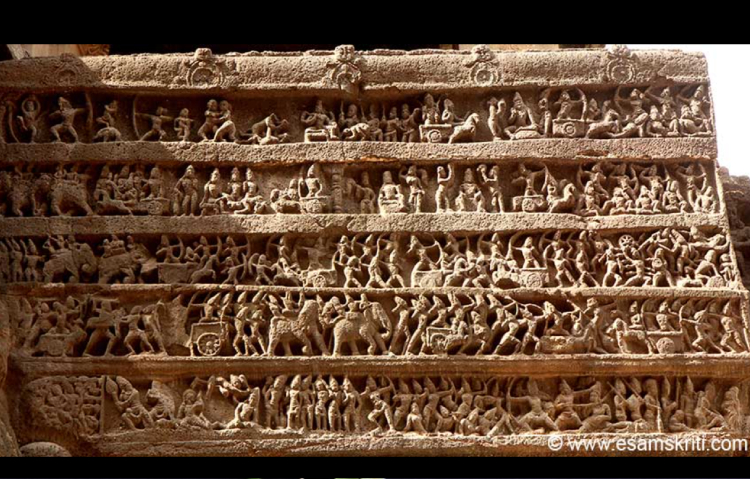 © www.esamskriti.com